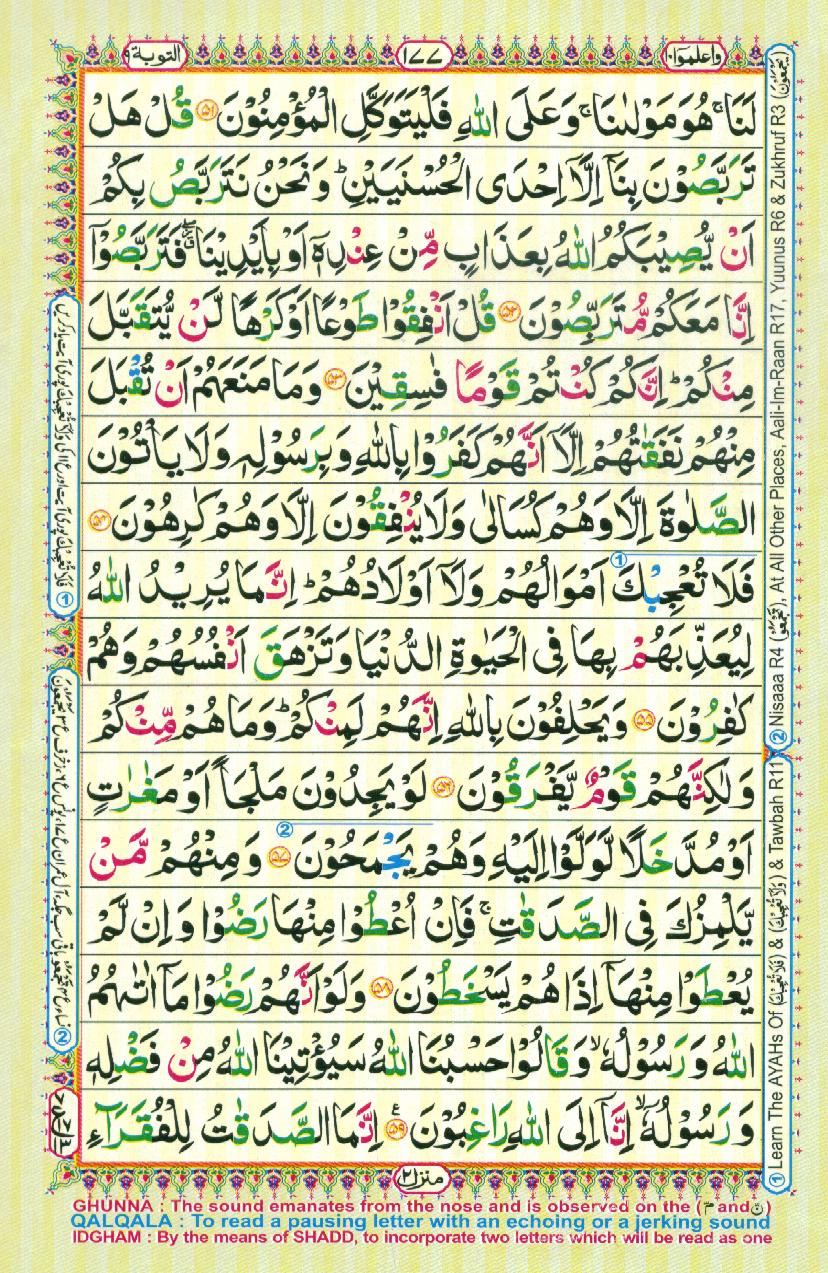 واعلموا۱۰
۱۷۷
التوبة ۹
لَنَا ۚ هُوَ مَوْلٰىنَا ۚ وَعَلَى اللّٰهِ فَلْيَتَوَكَّلِ الْمُؤْمِنُوْنَ ﴿۵۱﴾ قُلْ هَلْ
تَرَبَّصُوْنَ بِنَاۤ اِلَّاۤ اِحْدَى الْحُسْنَيَيْنِ ؕ وَنَحْنُ نَتَرَبَّصُ بِكُمْ
اَنْ يُّصِيْبَكُمُ اللّٰهُ بِعَذَابٍ مِّنْ عِنْدِهٖۤ اَوْ بِاَيْدِيْنَا ۖ فَتَرَبَّصُوْۤا
اِنَّا مَعَكُمْ مُّتَرَبِّصُوْنَ ﴿۵۲﴾ قُلْ اَنْفِقُوْا طَوْعًا اَوْ كَرْهًا لَّنْ يُّتَقَبَّلَ
مِنْكُمْ ؕ اِنَّكُمْ كُنْتُمْ قَوْمًا فٰسِقِيْنَ ﴿۵۳﴾ وَمَا مَنَعَهُمْ اَنْ تُقْبَلَ
مِنْهُمْ نَفَقٰتُهُمْ اِلَّاۤ اَنَّهُمْ كَفَرُوْا بِاللّٰهِ وَبِرَسُوْلِهٖ وَلَا يَاْتُوْنَ
الصَّلٰوةَ اِلَّا وَهُمْ كُسَالٰى وَلَا يُنْفِقُوْنَ اِلَّا وَهُمْ كٰرِهُوْنَ ﴿۵۴﴾
فَلَا تُعْجِبْكَ اَمْوَالُهُمْ وَلَاۤ اَوْلَادُهُمْ ؕ اِنَّمَا يُرِيْدُ اللّٰهُ
لِيُعَذِّبَهُمْ بِهَا فِى الْحَيٰوةِ الدُّنْيَا وَتَزْهَقَ اَنْفُسُهُمْ وَهُمْ
كٰفِرُوْنَ ﴿۵۵﴾ وَيَحْلِفُوْنَ بِاللّٰهِ اِنَّهُمْ لَمِنْكُمْ ؕ وَمَا هُمْ مِّنْكُمْ
وَلٰكِنَّهُمْ قَوْمٌ يَّفْرَقُوْنَ ﴿۵۶﴾ لَوْ يَجِدُوْنَ مَلْجَاً اَوْ مَغٰرٰتٍ
اَوْ مُدَّخَلًا لَّوَلَّوْا اِلَيْهِ وَهُمْ يَجْمَحُوْنَ ﴿۵۷﴾ وَمِنْهُمْ مَّنْ
يَّلْمِزُكَ فِى الصَّدَقٰتِ ۚ فَاِنْ اُعْطُوْا مِنْهَا رَضُوْا وَاِنْ لَّمْ
يُعْطَوْا مِنْهَاۤ اِذَا هُمْ يَسْخَطُوْنَ ﴿۵۸﴾ وَلَوْ اَنَّهُمْ رَضُوْا مَاۤ اٰتٰىهُمُ
اللّٰهُ وَرَسُوْلُهٗ ۙ وَقَالُوْا حَسْبُنَا اللّٰهُ سَيُؤْتِيْنَا اللّٰهُ مِنْ فَضْلِهٖ
وَرَسُوْلُهٗۤ ۙ اِنَّاۤ اِلَى اللّٰهِ رَاغِبُوْنَ ﴿۵۹﴾ اِنَّمَا الصَّدَقٰتُ لِلْفُقَرَآءِ
منزل۲
① Learn The AYAHs Of (فَلَا تُعْجِبْكَ) & (وَلَا تُعْجِبْكَ) & Tawbah R11
② Nisaaa R4 ), At All Other Places, Aali-Im-Raan R17, Yuunus R6 & Zukhruf R3 (يَجْمَعُوْنَ)
GHUNNA : The sound emanates from the nose and is observed on the (مّ and نّ)
QALQALA : To read a pausing letter with an echoing or a jerking sound
IDGHAM : By the means of SHADD, to incorporate two letters which will be read as one